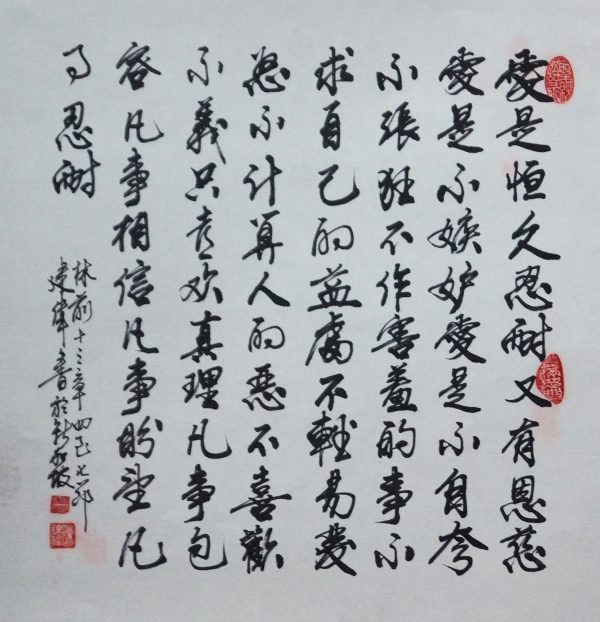 愛是恒久忍耐又有恩慈
愛是不嫉妒愛是不自夸
不張狂不作害羞的事不
求自己的益處不輕易發
怒不计算人的惡不喜歡
不義只喜欢真理凡事包
容凡事相信凡事盼望凡
事忍耐
林前十三章四至七節
建偉書於新加坡